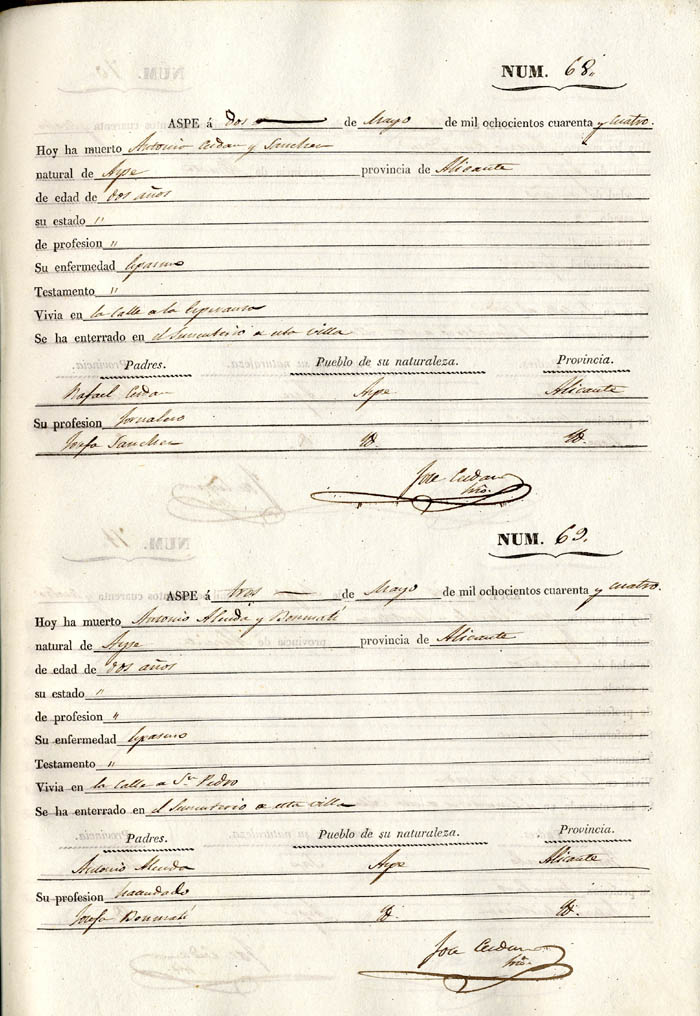 NUM. 68.
ASPE á dos de Mayo de mil ochocientos cuarenta y cuatro.
Hoy ha muerto Antonio Cerdan y Sanchez
natural de Aspe provincia de Alicante
de edad de dos años
su estado "
de profesion "
Su enfermedad Espasmo
Testamento "
Vivia en la Calle a la Esperanza
Se ha enterrado en el Sementerio a esta villa
Padres. Pueblo de su naturaleza. Provincia.
Rafael Cerdan Aspe Alicante
Su profesion Jornalero
Josefa Sanchez Yd. Yd.
Jose Cerdan
NUM. 69.
ASPE á tres de Mayo de mil ochocientos cuarenta y cuatro.
Hoy ha muerto Antonio Almida y Bonmatí
natural de Aspe provincia de Alicante
de edad de dos años
su estado "
de profesion "
Su enfermedad Espasmo
Testamento "
Vivia en la Calle a Sn Pedro
Se ha enterrado en el Sementerio a esta villa
Padres. Pueblo de su naturaleza. Provincia.
Antonio Almida Aspe Alicante
Su profesion hacendado
Josefa Bonmatí Yd. Yd.
Jose Cerdan